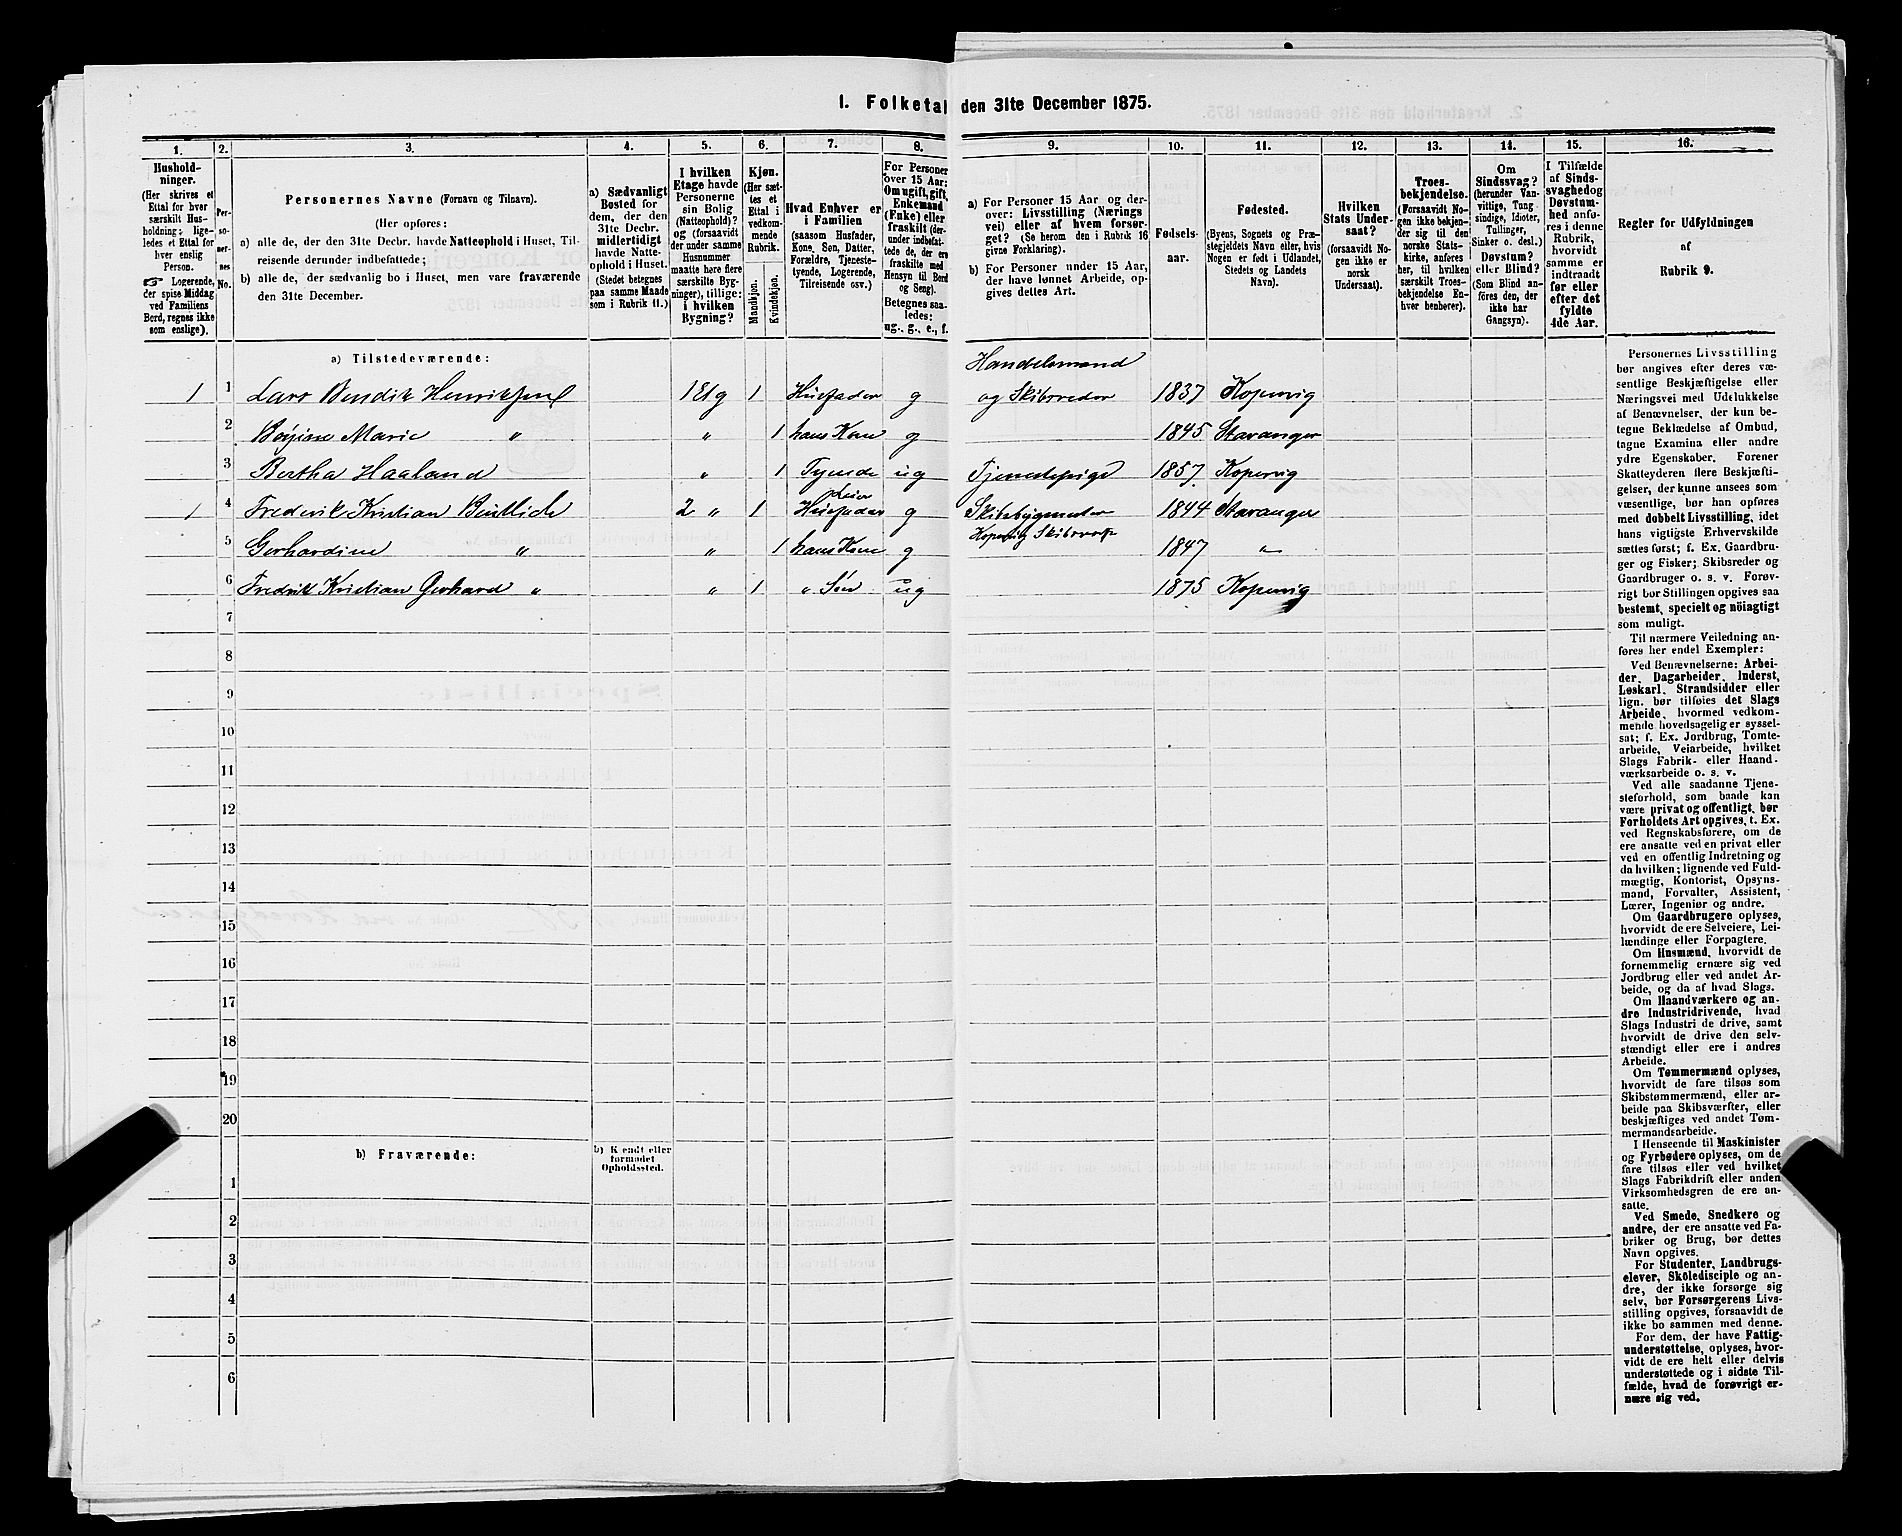 1. Folketal den 31te December 1875.
1. 2. 3. 4. 5. 6. 7. 8. 9. 10. 11. 12. 13. 14. 15. 16.
Hushold-
ninger.
(Her skrives et
Ettal for hver
særskilt Hus-
holdning; lige-
ledes et Ettal for
hver enslig
Person.
☞ Logerende,
der spise Middag
ved Familiens
Bord, regnes ikke
som enslige).
Per-
so-
ner-
nes
No.
Personernes Navne (Fornavn og Tilnavn).
(Her opføres:
a) alle de, der den 31te Decbr. havde Natteophold i Huset, Til-
reisende derunder indbefattede;
b) alle de, der sædvanlig bo i Huset, men vare fraværende
den 31te December.
a) Sædvanligt
Bosted for
dem, der den
31te Decbr.
midlertidigt
havde Natte-
ophold i Huset.
(Stedet betegnes
paa samme Maade
som i Rubrik 11.)
I hvilken
Etage havde
Personerne
sin Bolig
(Natteophold)?
og (forsaavidt
der under samme
Husnummer
maatte høre flere
særskilte Byg-
ninger), tillige:
i hvilken
Bygning?
Kjøn.
(Her sæt-
tes et
Ettal i
vedkom-
mende
Rubrik.
Mandkjøn.
Kvindekjøn.
Hvad Enhver er
i Familien
(saasom Husfader,
Kone, Søn, Datter,
Forældre, Tjeneste-
tyende, Logerende,
Tilreisende osv.)
For Personer
over 15 Aar:
Om ugift, gift,
Enkemand
(Enke) eller
fraskilt (der-
under indbefat-
tede de, der ere
fraskilte med
Hensyn til Bord
og Seng).
Betegnes saa-
ledes:
ug., g., e., f.
a) For Personer 15 Aar og der-
over: Livsstilling (Nærings
vei) eller af hvem forsør-
get? (Se herom den i Rubrik 16
givne Forklaring).
b) For Personer under 15 Aar,
der have lønnet Arbeide, op-
gives dettes Art.
Fødsels-
aar.
Fødested.
(Byens, Sognets og Præ-
stegjeldets Navn eller, hvis
Nogen er født i Udlandet,
Stedets og Landets
Navn).
Hvilken
Stats Under-
saat?
(forsaavidt No-
gen ikke er
norsk
Undersaat).
Troes-
bekjendelse.
(Forsaavidt No-
gen ikke bekjen-
der sig til den
norske Stats-
kirke, anføres
her, til hvilken
særskilt Troes-
bekjendelse En-
hver henhører).
Om
Sindssvag?
(herunder Van-
vittige, Tung
sindige, Idioter,
Tullinger,
Sinker o. desl.)
Døvstum?
eller Blind?
(Som Blind an-
føres den, der
ikke har
Gangsyn).
I Tilfælde
af Sinds-
svaghed og
Døvstum-
hed anfø-
res i denne
Rubrik,
hvorvidt
samme er
indtraadt
før eller
efter det
fyldte
4de Aar.
Regler for Udfyldningen
af
Rubrik 9.
a) Tilstedeværende:
Handelsmand
1 1 Lars Bendik Henriksen 1 Etg 1 Husfader g og Skibsreder 1837 Kopervig
2 Marie „ „ 1 hans Kone g 1845 Stavanger
3 Bertha Haaland „ 1 Tyende ug Tjenestepige 1857 Kopervig
Leier
1 4 Frederik Kristian 2 „ 1 Husfader g Skibsbygmester 1844 Stavanger
5 Gerhardine „ „ 1 hans Kone g Kopervig 1847 „
6 Fredrik Kristian Gerhard „ „ 1 „ Søn ug 1875 Kopervig
7
8
9
10
11
12
13
14
15
16
17
18
19
20
b) Fraværende:
b) Kjendt eller
formodet
Opholdssted.
1
2
3
4
5
6
Personernes Livsstilling
bør angives efter deres væ-
sentlige Beskjæftigelse eller
Næringsvei med Udelukkelse
af Benævnelser, der kun be-
tegne Beklædelse af Ombud,
tagne Examina eller andre
ydre Egenskaber. Forener
Skatteyderen flere Beskjæfti-
gelser, der kunne ansees som
væsentlige, bør han opføres
med dobbelt Livsstilling, idet
hans vigtigste Erhvervskilde
sættes først; f. Ex. Gaardbru-
ger og Fisker; Skibsreder og
Gaardbruger o. s. v. Forøv-
rigt bør Stillingen opgives saa
bestemt, specielt og nöiagtigt
som muligt.
Til nærmere Veiledning an-
føres her endel Exempler:
Ved Benævnelserne: Arbei-
der, Dagarbeider, Inderst,
Løskarl, Strandsidder eller
lign. bør tilføies det Slags
Arbeide, hvormed vedkom-
mende hovedsagelig er syssel-
sat; f. Ex. Jordbrug, Tomte-
arbeide, Veiarbeide, hvilket
Slags Fabrik- eller Haand-
værksarbeide o. s. v.
Ved alle saadanne Tjene-
steforhold, som baade kan
være privat og offentligt, bør
Forholdets Art opgives, t. Ex.
ved Regnskabsførere, om de
ere ansatte ved en privat eller
ved en offentlig Indretning og
da hvilken; lignende ved Fuld-
mægtig, Kontorist, Opsyns-
mand, Forvalter, Assistent,
Lærer, Ingeniør og andre.
Om Gaardbrugere oplyses,
hvorvidt de ere Selveiere, Lei-
lændinge eller Forpagtere.
Om Husmænd, hvorvidt de
fornemmelig ernære sig ved
Jordbrug eller ved andet Ar-
beide, og da af hvad Slags.
Om Haandværkere og an-
dre Industridrivende, hvad
Slags Industri de drive, samt
hvorvidt de drive den selv-
stændigt eller ere i andres
Arbeide.
Om Tømmermænd oplyses,
hvorvidt de fare tilsøs som
Skibstømmermænd, eller ar-
beide paa Skibsværfter, eller
beskjæftiges ved andet Tøm-
mermandsarbeide.
I Henseende til Maskinister
og Fyrbødere oplyses, om de
fare tilsøs eller ved hvilket
Slags Fabrikdrift eller anden
Virksomhedsgren de ere an-
satte.
Ved Smede, Snedkere og
andre, der ere ansatte ved Fa-
briker og Brug, bør dettes
Navn opgives.
For Studenter, Landbrugs-
elever, Skoledisciple og an-
dre, der ikke forsørge sig
selv, bør Forsørgerens Livs-
stilling opgives, forsaavidt de
ikke bo sammen med denne.
For dem, der have Fattig-
understøttelse, oplyses, hvor-
vidt de ere helt eller delvis
understøttede og i sidste Til-
fælde, hvad de forøvrigt er-
nære sig ved.